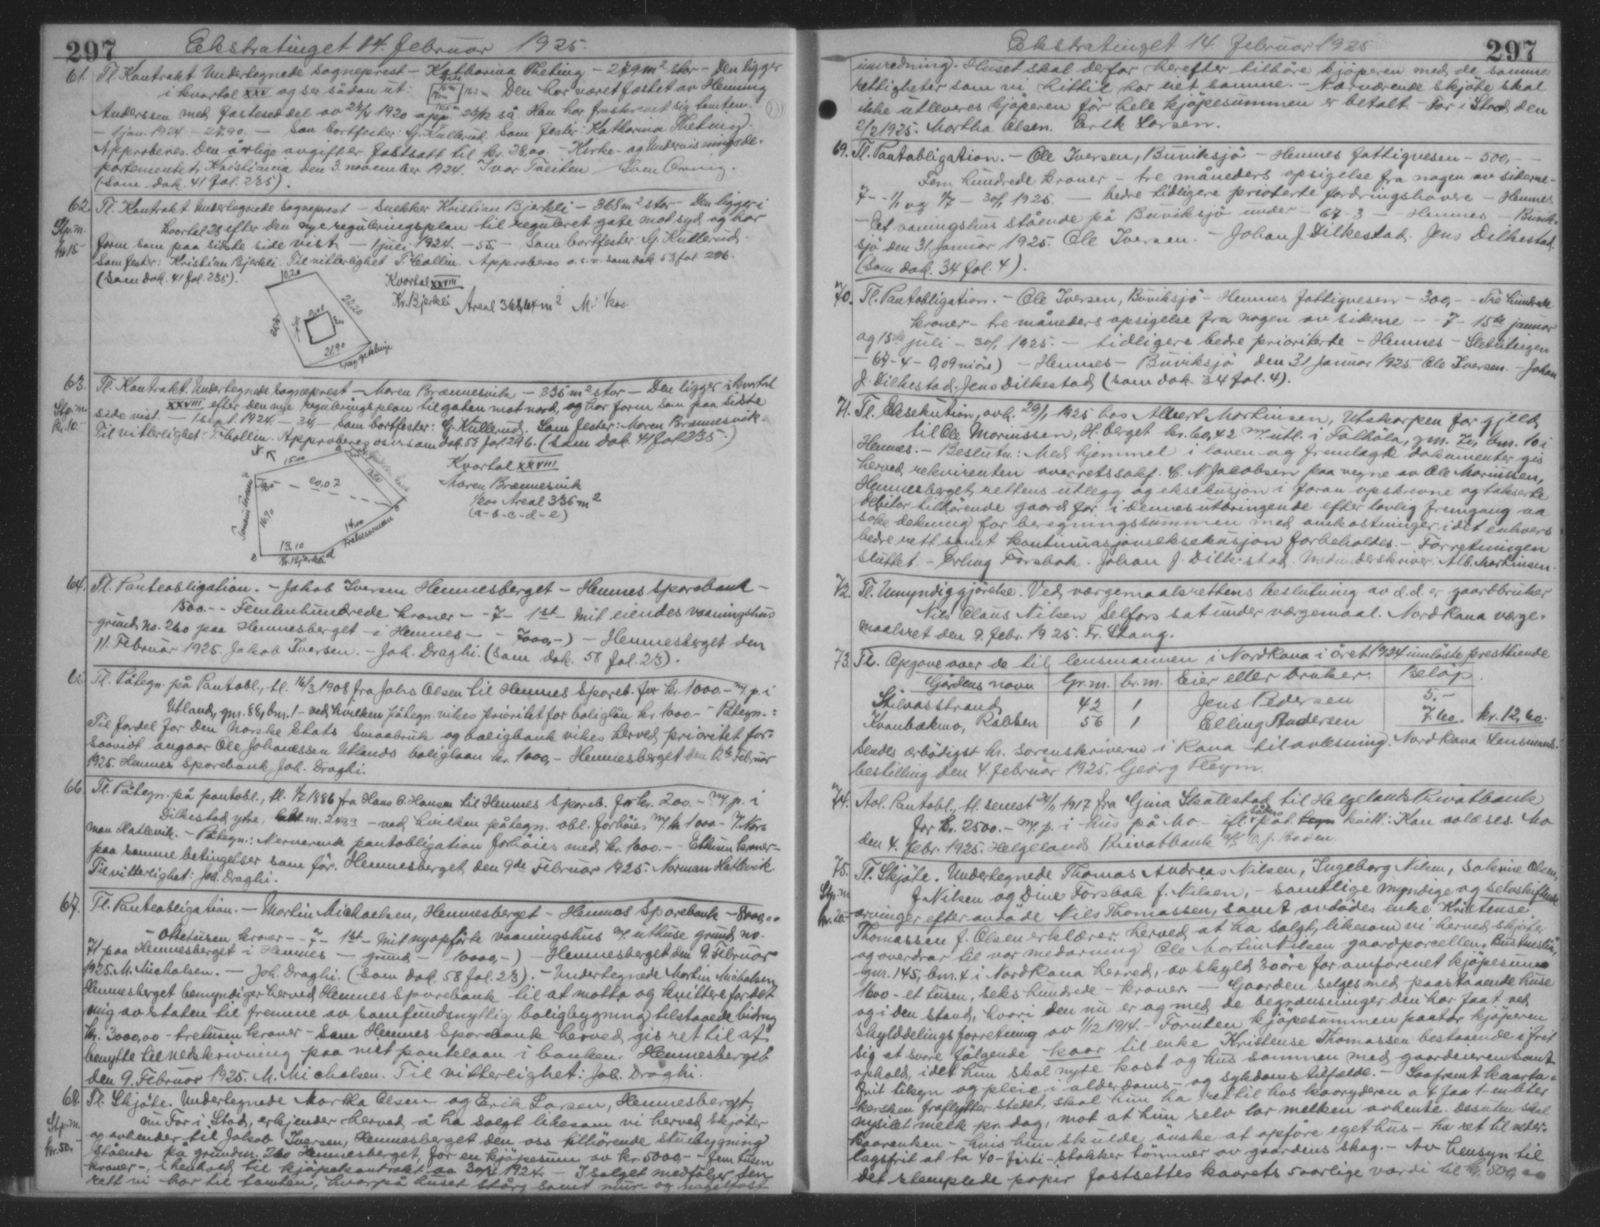 297 Ekstratinget 14. februar 1925.
61. Tl. Kontrakt Undertegnede sogneprest – Katharina Theting – 279 m² stor – Den ligger
i kvartal XXV og ser sådan ut: Den har været fæstet av Henning
Anderssen med fæsteseddel av 1920 så Han har fraskrevet sig tomten.
– 1 jan. 1924 – 27,90 – Som bortfester: G. Kullerud. Som fester: Katharina Theting.
Approberes. Den årlige avgift er fastsatt til kr. 28,00. – Kirke- og Undervisningsde-
partementet, Kristiania den 3. november 1924. Ivar Tveiten
(Som dok. 41 fol. 235).
62. Tl. Kontrakt Undertegnede sogneprest – Snekker Kristian Bjerkli – 365 m² stor – Den ligger i
Stp.m. kvartal 28 efter den nye reguleringsplan til reguleret gate mot syd og har
kr. 15 form som paa sidste side vist. – 1 juli 1924. – 55 – Som bortfester: G. Kullerud.
Som fester: Kristian Bjerkli. Til vitterlighet F. Collin. Approberes o.s.v. som dok. 53 fol. 296.
(Som dok. 41 fol. 235).
Kvartal XXVIII
Kr. Bjerkli Areal 368,64 m² M: 1/1000
63. Tl. Kontrakt. Undertegnede Sogneprest – Maren Brænnesvik – 335 m² stor – Den ligger i kvartal
Stp.m. XXVIII efter den nye reguleringsplan til gaten mot nord, og har form som paa sidste
kr. 10.- side vist – 1924. – 34 – Som bortfester: G. Kullerud. Som fester: Maren Brænnesvik.
Til vitterlighet: F. Collin. Approberes o.s.v. som dok. 53 fol. 296. (Som dok. 41 fol. 235.)
15,00
20,07
16,70
13,10
14,00
Kr. Bjerkli
Kvartal XXVIII
Maren Brænnesvik
Areal 336 m²
(a-b-c-d-e)
64. Tl. Panteobligation. – Jakob Iversen Hemnesberget – Hemnes Sparebank –
1500.- Femtenhundrede kroner – 7 – 1st – Mit eiendes vaaningshus
grund no. 260 paa Hemnesberget i Hemnes – – 7000,-) – Hemnesberget den
11. Februar 1925. Jakob Iversen. – Joh. Draghi. (Som dok. 58 fol. 23).
65. Tl. Påtegn. på Pantobl., tl. 14/3 1908 fra Johs Olsen til Hemnes Spareb. for kr. 1000.- m. p. i
Utland, gnr. 86, bnr. 1 – ved hvilken påtegn. vikes prioritet for boliglån kr. 1000.- Påtegn.:
Til fordel for Den Norske Stats Smaabruk og boligbank vikes herved prioritet for-
saavidt angaar Ole Johanessen Utlands boliglaan kr. 1000,- Hemnesberget den 12te Februar
1925. Hemnes Sparebank Joh. Draghi.
66. Tl. Påtegn. på pantobl., tl. 1/2 1886 fra Hans B. Hansen til Hemnes Spareb. for kr. 200.- m. p. i
Dilkestad ytre, m. 2433 – ved hvilken påtegn. obl. forhøies m. kr. 1000 – Nor-
man Hatlevik. – Påtegn.: Nærværende pantobligation forhøies med kr. 1000.- Ettusen kroner –
paa samme betingelser som før. Hemnesberget den 9de Februar 1925. Norman Hatlevik.
Til vitterlighet: Joh. Draghi.
67. Tl. Panteobligation. – Martin Michaelsen, Hemnesberget – Hemnes Sparebank – 8000,00
– Ottetusen kroner – 7 – 1st – Mit nyopførte vaaningshus m. utluse grund no.
71 paa Hemnesberget i Hemnes – grund – 10000,-) – Hemnesberget den 9. Februar
1925. M. Michalsen. – Joh. Draghi. (Som dok. 58 fol. 23). – Undertegnede Martin Michalsen,
Hemnesberget bemyndiger herved Hemnes Sparebank til at motta og kvittere for det
mig av Staten til fremme av samfundsnyttig boligbygning tilstaaede bidrag
kr. 3000,00 – tretusen kroner – som Hemnes Sparebank herved gis ret til at
benytte til nedskrivning paa mit pantelaan i banken. Hemnesberget
den 9. Februar 1925. M. Michalsen. Til vitterlighet: Joh. Draghi.
68. Tl. Skjøte. Undertegnede Martha Olsen og Erik Larsen, Hemnesberget,
Stp.m. nu Før i Stad, erkjender herved å ha solgt likesom vi herved skjøter
kr. 50.- og avhender til Jakob Iversen, Hemnesberget den oss tilhørende stuebygning
stående på grunden 260 Hemnesberget, for en kjøpesum av kr. 5000.- Femtusen
kroner – , i henhold til kjøpekontrakt av 30/12 1924. – I salget medfølger den
rett vi har til tomten, hvorpå huset står, samt mur- og nagelfast
Ekstratinget 14. februar 1925 297
inredning. Huset skal derfor herefter tilhøre kjøperen med de samme
rettigheter som vi hittil har eiet samme. – Nærværende skjøte skal
ikke utleveres kjøperen før hele kjøpesummen er betalt. – Før i Stad, den
2/2 1925. Martha Olsen. Erik Larsen.
69. Tl. Pantobligation. – Ole Iversen, Buviksjø – Hemnes fattigvesen – 500,-
Fem hundrede kroner – tre måneders opsigelse fra nogen av siderne –
7 – 1/1 og 1/7 – 30/1 1925. – – bedre tidligere prioriterte fordringshavere – Hemnes
– Et vaningshus stående på Buviksjø under – 67-3 – Hemnes – Buvik-
sjø den 31 januar 1925 Ole Iversen. – Johan J. Dilkestad. Jens Dilkestad
(Som dok. 34 fol. 4).
70. Tl. Pantobligation. – Ole Iversen, Buviksjø – Hemnes fattigvesen – 300,- – Tre hundrede
kroner – tre måneders opsigelse fra nogen av siderne – 7 – 15de januar
og 15de juli – 30/1 1925. – tidligere bedre prioriterte – Hemnes – Sletteengen
– 69 – 4 – 0,09 møre) – Hemnes – Buviksjø den 31 januar 1925. Ole Iversen. – Johan
J. Dilkestad. Jens Dilkestad (som dok. 34 fol. 4).
71. Tl. Eksekution, avh. 29/1 1925 hos Albert Martinsen, Utskarpen for gjeld
til Ole Marinssen, H.berget kr. 60,42 m. utl. i Falkåla, gnr. 70, bnr. 10 i
Hemnes. – Beslutn.: Med hjemmel i loven og fremlagte dokumenter gis
herved rekvirenten overretssakf. C. N. Jakobsen paa vegne av Ole Marinssen,
Hemnesberget, rettens utlegg og eksekusjon i foran opskrevne og takserte
debitor tilhørende gaard for i dennes utbringende efter lovlig fremgang aa
søke dekning for beregningssummen med omkostninger i det enhvers
bedre rett samt kontinuasjonseksekusjon forbeholdes. – Forretningen
sluttet – Erling Forsbak. Johan J. Dilkestad. Medunderskriver Alb. Martinsen.
72. Tl. Umyndiggjørelse. Ved værgemaalsrettens beslutning av d.d. er gaardbruker
Nils Claus Nilsen Selfors sat under værgemaal. Nord Rana værge-
maalsret den 9. febr. 1925. Fr. Stang.
73. Tl. Opgave over de til lensmannen i Nord Rana i året 1924 innløste prestetiende
Gårdens navn Gr.nr. br.nr. Eier eller bruker. Beløp.
Stilvasstrand 42 1 Jens Pedersen 5,-
Kvanbakmo, Rabben 56 1 Elling Andersen 7.60. kr. 12,60.
Sendes ærbødigst hr. sorenskriveren i Rana til avlesning. Nord Rana Lensmands-
bestilling den 4. februar 1925. Georg Reym.
74. Avl. Pantobl., tl. senest 1917 fra Gina Skalstad til Helgelands Privatbank
for kr. 2500.- m. p. i hus på Mo – ifl. påt. kvitt: Kan avlæses. Mo
den 4. febr. 1925. Helgelands Privatbank A/S
75. Tl. Skjøte. Undertegnede Thomas Andreas Nilsen, Ingeborg Nilsen, Sakrine Olsen,
Stp.m. f. Nilsen og Dine Forsbak f. Nilsen, – samtlige myndige og selvskiftende
kr. 20.- arvinger efter avdøde Nils Thomassen, samt avdødes enke Kristense
Thomassen f. Olsen erklærer herved at ha solgt, likesom vi herved skjøter
og overdrar til vor medarving Ole Martin Nilsen gaardparcellen
gnr. 145, bnr. 4 i Nord Rana herred, av skyld 30 øre for omforenet kjøpesum
1600 – et tusen, seks hundrede – kroner. – Gaarden selges med paastaaende huse
og i den stand, hvori den nu er og med de begrænsninger den har faat ved
skylddelingsforretning av 11/2 1914. – Foruten kjøpesummen paatar kjøperen
sig at svare følgende kaar til enke Kristense Thomassen bestaaende i frit
ophold, idet hun skal nyte kost og hus sammen med gaardeieren samt
frit tilsyn og pleie i alderdoms- og sykdomstilfælde. – Saafremt kaarta-
kersken fraflytter stedet, skal hun ha ret til hos kaaryderen at faa 1 en liter
nysilet melk pr. dag, mot at hun selv lar melken avhente. Desuten skal
kaarenken – hvis hun skulde ønske at opføre eget hus – ha ret til veder-
lagsfrit at ta 40 – førti – stokker tømmer av gaardens skog. – Av hensyn til
det stemplede papir fastsettes kaarets 5 aarlige værdi til kr. 500,00